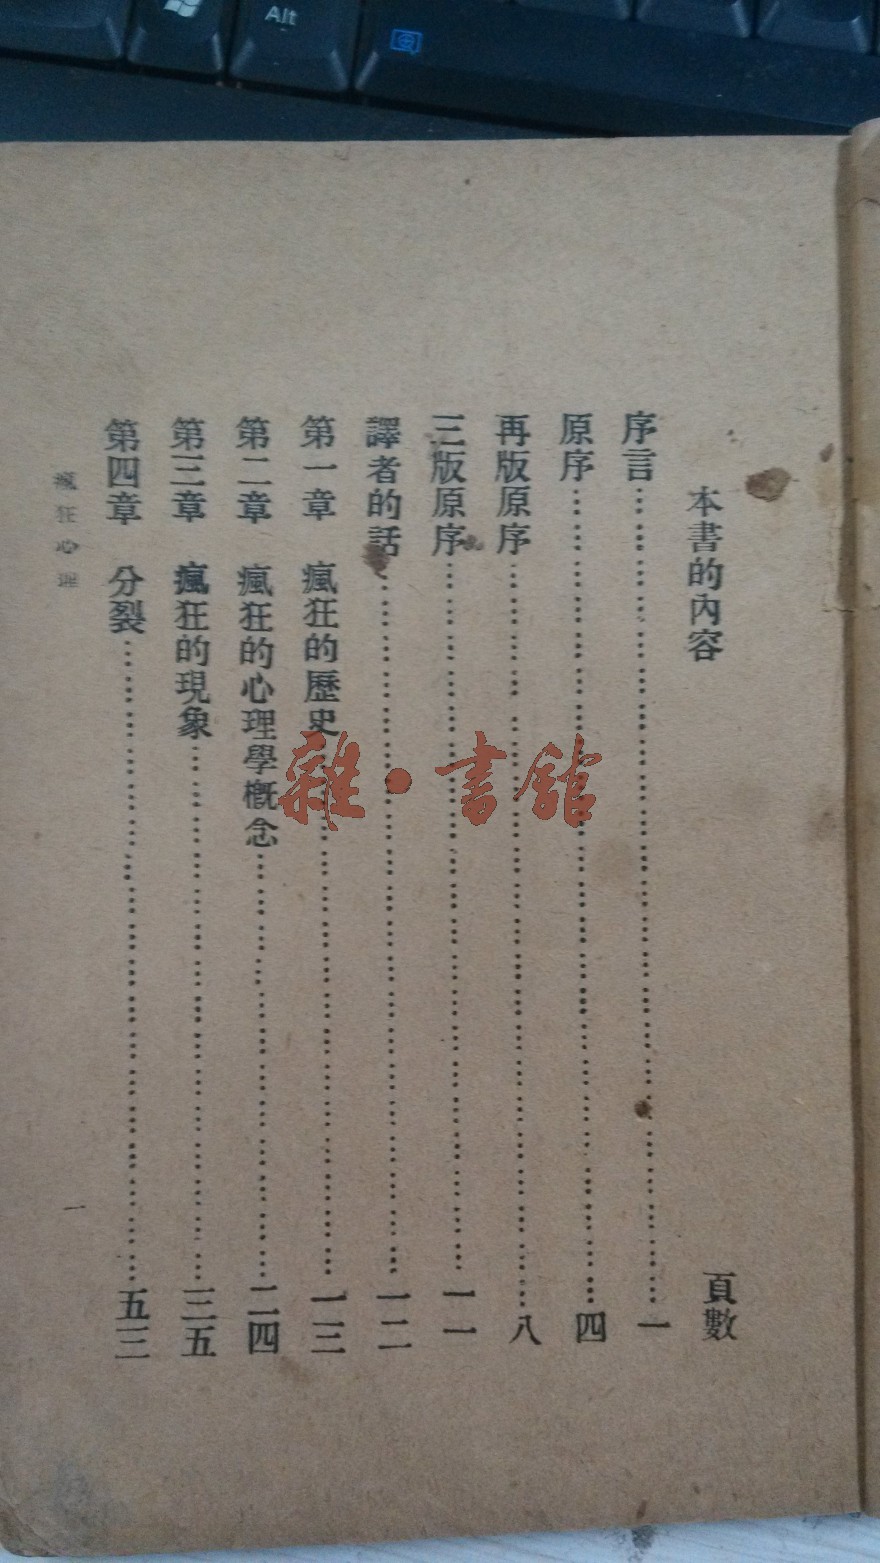 Alt
本書的內容 頁數
序言 一
原序 四
再版原序 八
三版原序 一一
譯者的話 一二
第一章 瘋狂的歷史 一三
第二章 瘋狂的心理學概念 二四
第三章 瘋狂的現象 三五
第四章 分裂 五三
瘋狂心理 一
雜·書館